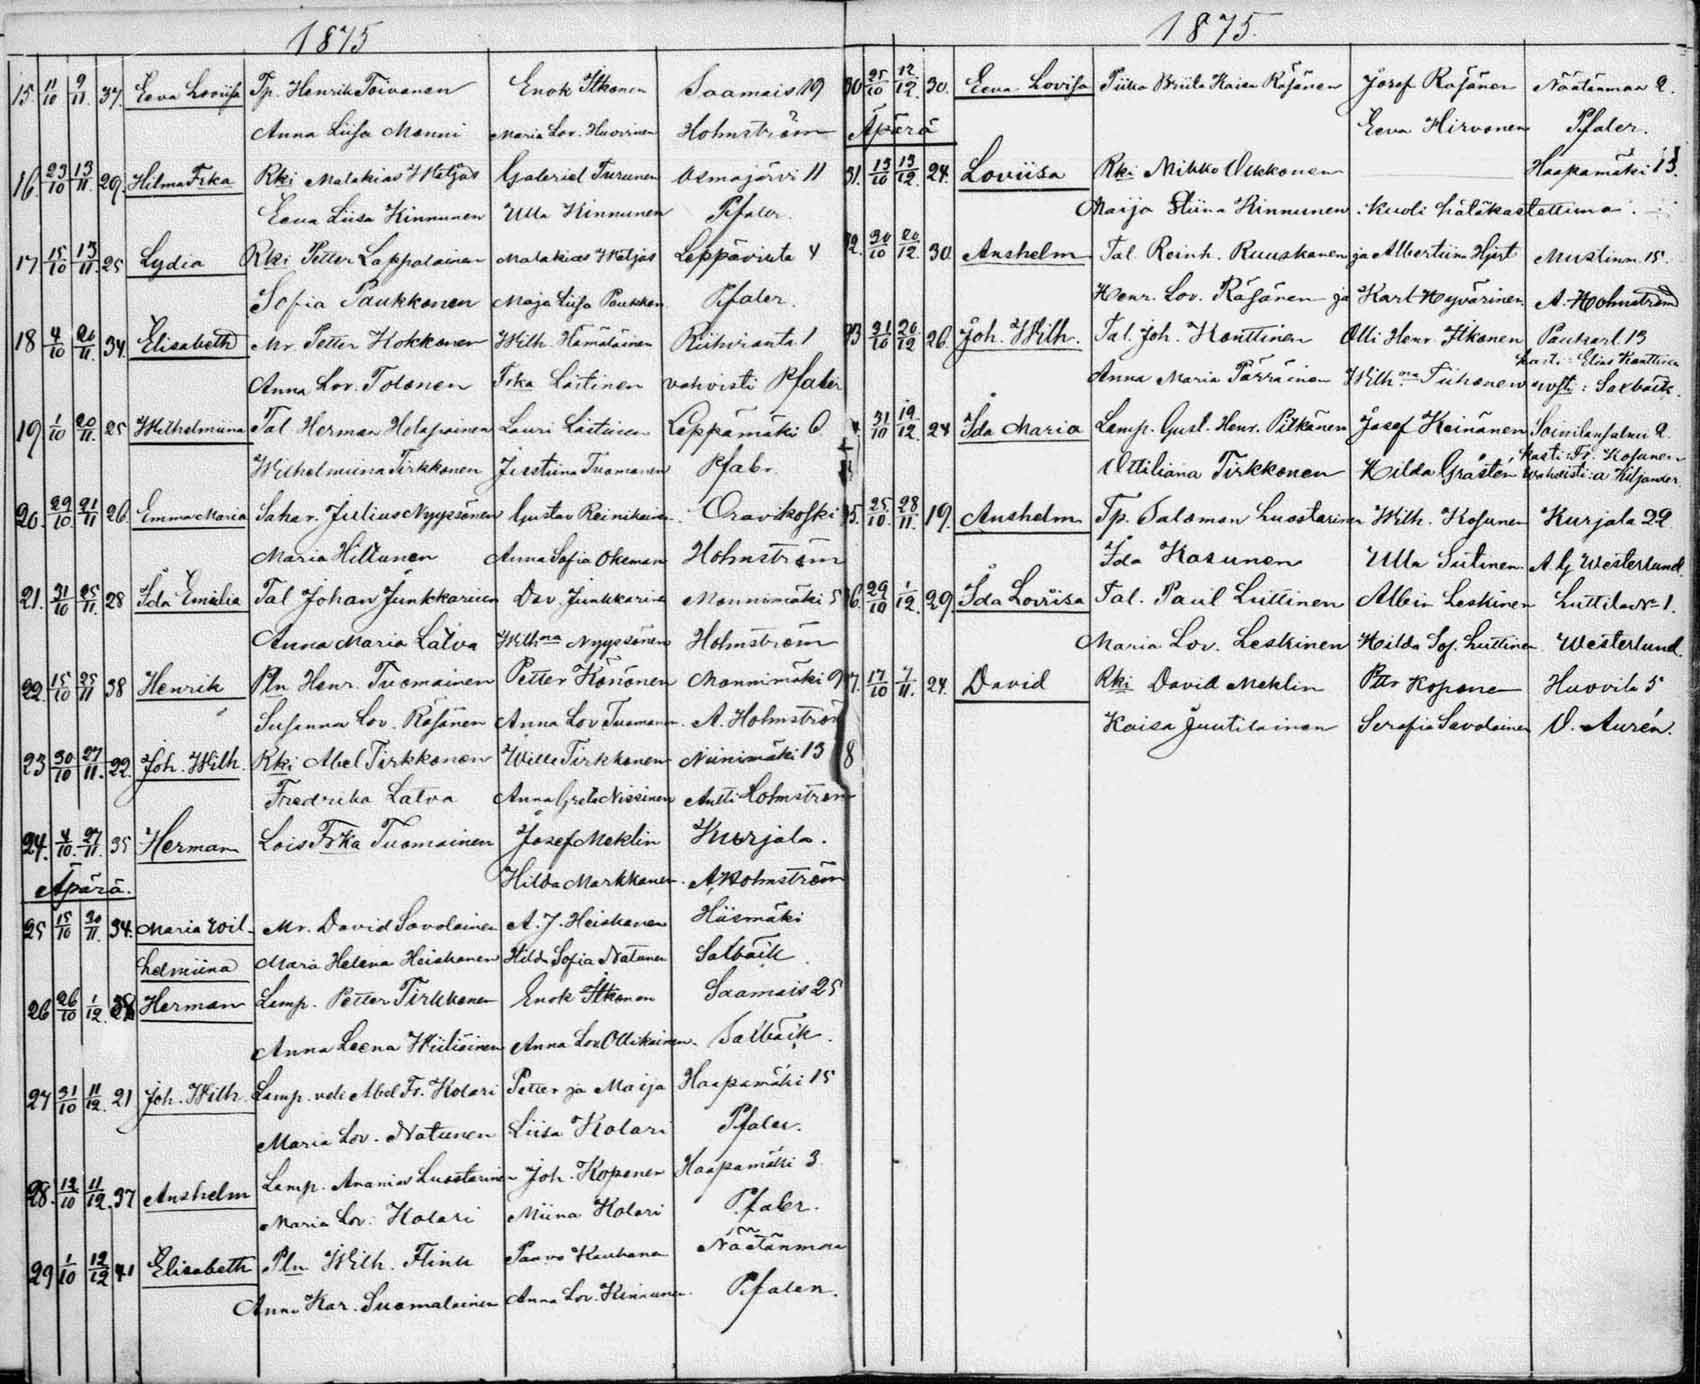 1875
15 11/10 9/11. 37. Eeva Loviisa Tp. Henrik Toivanen Enok Itkonen Saamais 19
Anna Liisa Monni Maria Lov. Huovinen Holmström
16. 23/10 13/11. 29. Hilma Frka Rki Malakias Wäljas Gabriel Turunen Osmajärvi 11
Eeva Liisa Kinnunen Ulla Kinnunen Pfaler.
17 15/10 13/11. 25 Lydia Rki Petter Lappalainen Malakias Wäljas Leppävirta 4
Sofia Paukkonen Maja Liisa Paukkon. Pfaler.
18 4/10 20/11. 34. Elisabeth Mr. Petter Kokkonen Wilh. Hämäläinen Riihiranta 1
Anna Lov. Tolonen Frka Lästinen vahvisti Pfaler
19 1/10 20/11. 25 Wilhelmiina Tal Herman Holopainen Lauri Lästinen Leppämäki 6
Wilhelmiina Tirkkonen Justiina Tuomanen Pfaler
20. 29/10 21/11 26. Emma Maria Sahar. Julius Nyyssönen Gustav Reinikainen Oravikoski
Maria Hiltunen Anna Sofia Okeman Holmström
21. 31/10 25/11. 28 Ida Emilia Tal Johan Junkkarinen Dav. Junkkarinen Monnimäki 5
Anna Maria Latva Wilh:na Nyyssönen Holmström
22. 15/10 25/11 38 Henrik Pln Henr. Tuomainen Petter Könönen Monnimäki 9
Susanna Lov. Räsänen Anna Lov Tuomanen. A. Holmström
23 30/10 27/11. 22. Joh. Wilh. Rki Abel Tirkkonen Wille Tirkkonen Niinimäki 13
Fredrika Latva Anna Greta Nissinen Antti Holmström
24. 4/10. 27/11. 35 Herman Lois Frka Tuomainen Josef Meklin Kurjala.
Äpärä. Hilda Markkanen. A. Holmström
25 15/10 30/11. 34. Maria Wil- Mr. David Savolainen A. J. Heiskanen Hiismäki
helmiina Maria Helena Heiskanen Hilda Sofia Natunen Saxbäck.
26 26/10 1/12. 38 Herman Lamp. Petter Tirkkonen Enok Itkonen Saamais 25
Anna Leena Wiiliäinen Anna Lov Ollikainen. Saxbäck.
27 31/10 11/12. 21 Joh. Wilh. Lamp. veli Abel Fr. Kolari Petter ja Maija Haapamäki 15
Maria Lov. Natunen Liisa Kolari Pfaler.
28. 12/10 11/12. 37 Anshelm Lamp. Anania Luostarinen Joh. Koponen Haapamäki 3
Maria Lov. Kolari Miina Kolari Pfaler.
29 1/10 12/12 41 Elisabeth Pln Wilh. Flink Paavo Kauhanen Näätänmaa
Anna Kar. Suomalainen Anna Lov. Kinnunen. Pfaler.
1875.
30 25/10 12/12. 30. Eeva Lovisa Piika Briita Kaisa Räsänen Josef Räsänen Näätänmaa 2.
Äpärä Eeva Hirvonen Pfaler.
31. 13/10 13/12. 24. Loviisa Rki Mikko Ukkonen Haapamäki 13.
Maija Stiina Kinnunen. Kuoli hätäkastettuna.
32. 30/10 20/12. 30. Anshelm Tal. Reinh. Ruuskanen ja Albertiina Hjert Mustinm. 15.
Henr. Lov. Räsänen ja Karl Hyvärinen. A. Holmström
33 31/10 20/12 26. Joh. Wilh. Tal. Joh. Konttinen Olli Henr. Itkonen Paukarl. 13
kasti: Elias Konttinen
Anna Maria Pärnänen Wilh:na Tiihonen vvsti: Saxbäck.
4. 31/10 19/12. 24 Ida Maria Lamp. Gust. Henr. Pitkänen Josef Keinänen Soinilansalmi 2.
kasti: Fr. Kosunen
Ottiliana Tirkkonen Hilda Grästen Wahvisti: A Kiljander.
35. 25/10. 28/11. 19. Anshelm Tp. Salomon Luostarinen Wilh. Kosunen Kurjala 22
Ida Kosunen Ulla Siitinen A. G Westerlund.
36. 29/10 1/12. 29. Ida Loviisa Tal. Paul Luttinen Albin Leskinen Luttila No 1.
Maria Lov. Leskinen Hilda Sof. Luttinen Westerlund.
37. 17/10 7/11. 24. David Rki David Meklin Pttr Koponen Huovila 5
Kaisa Juutilainen Serafia Savolainen O. Aurén.
8